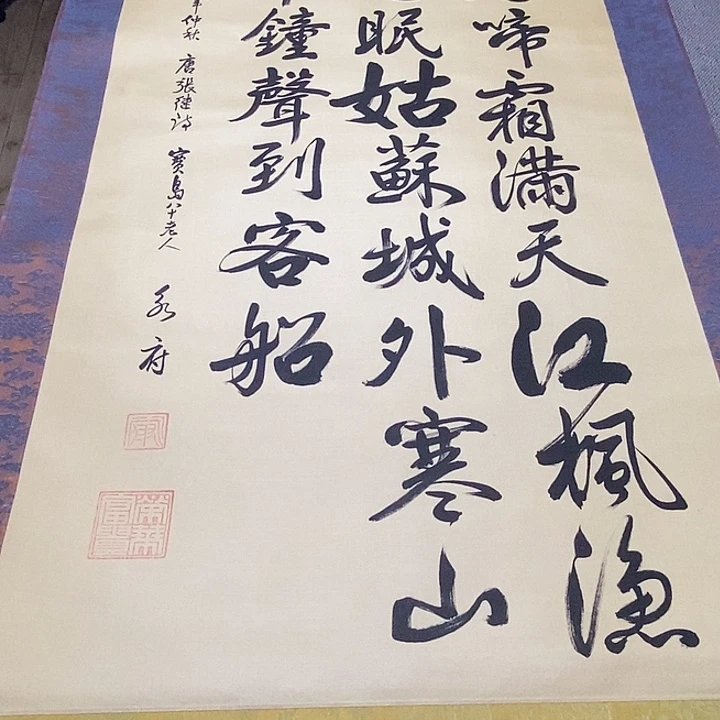 啼霜滿天江楓漁
眠姑蘇城外寒山
鐘聲到客船
仲秋 唐張継詩 寶島八十老人